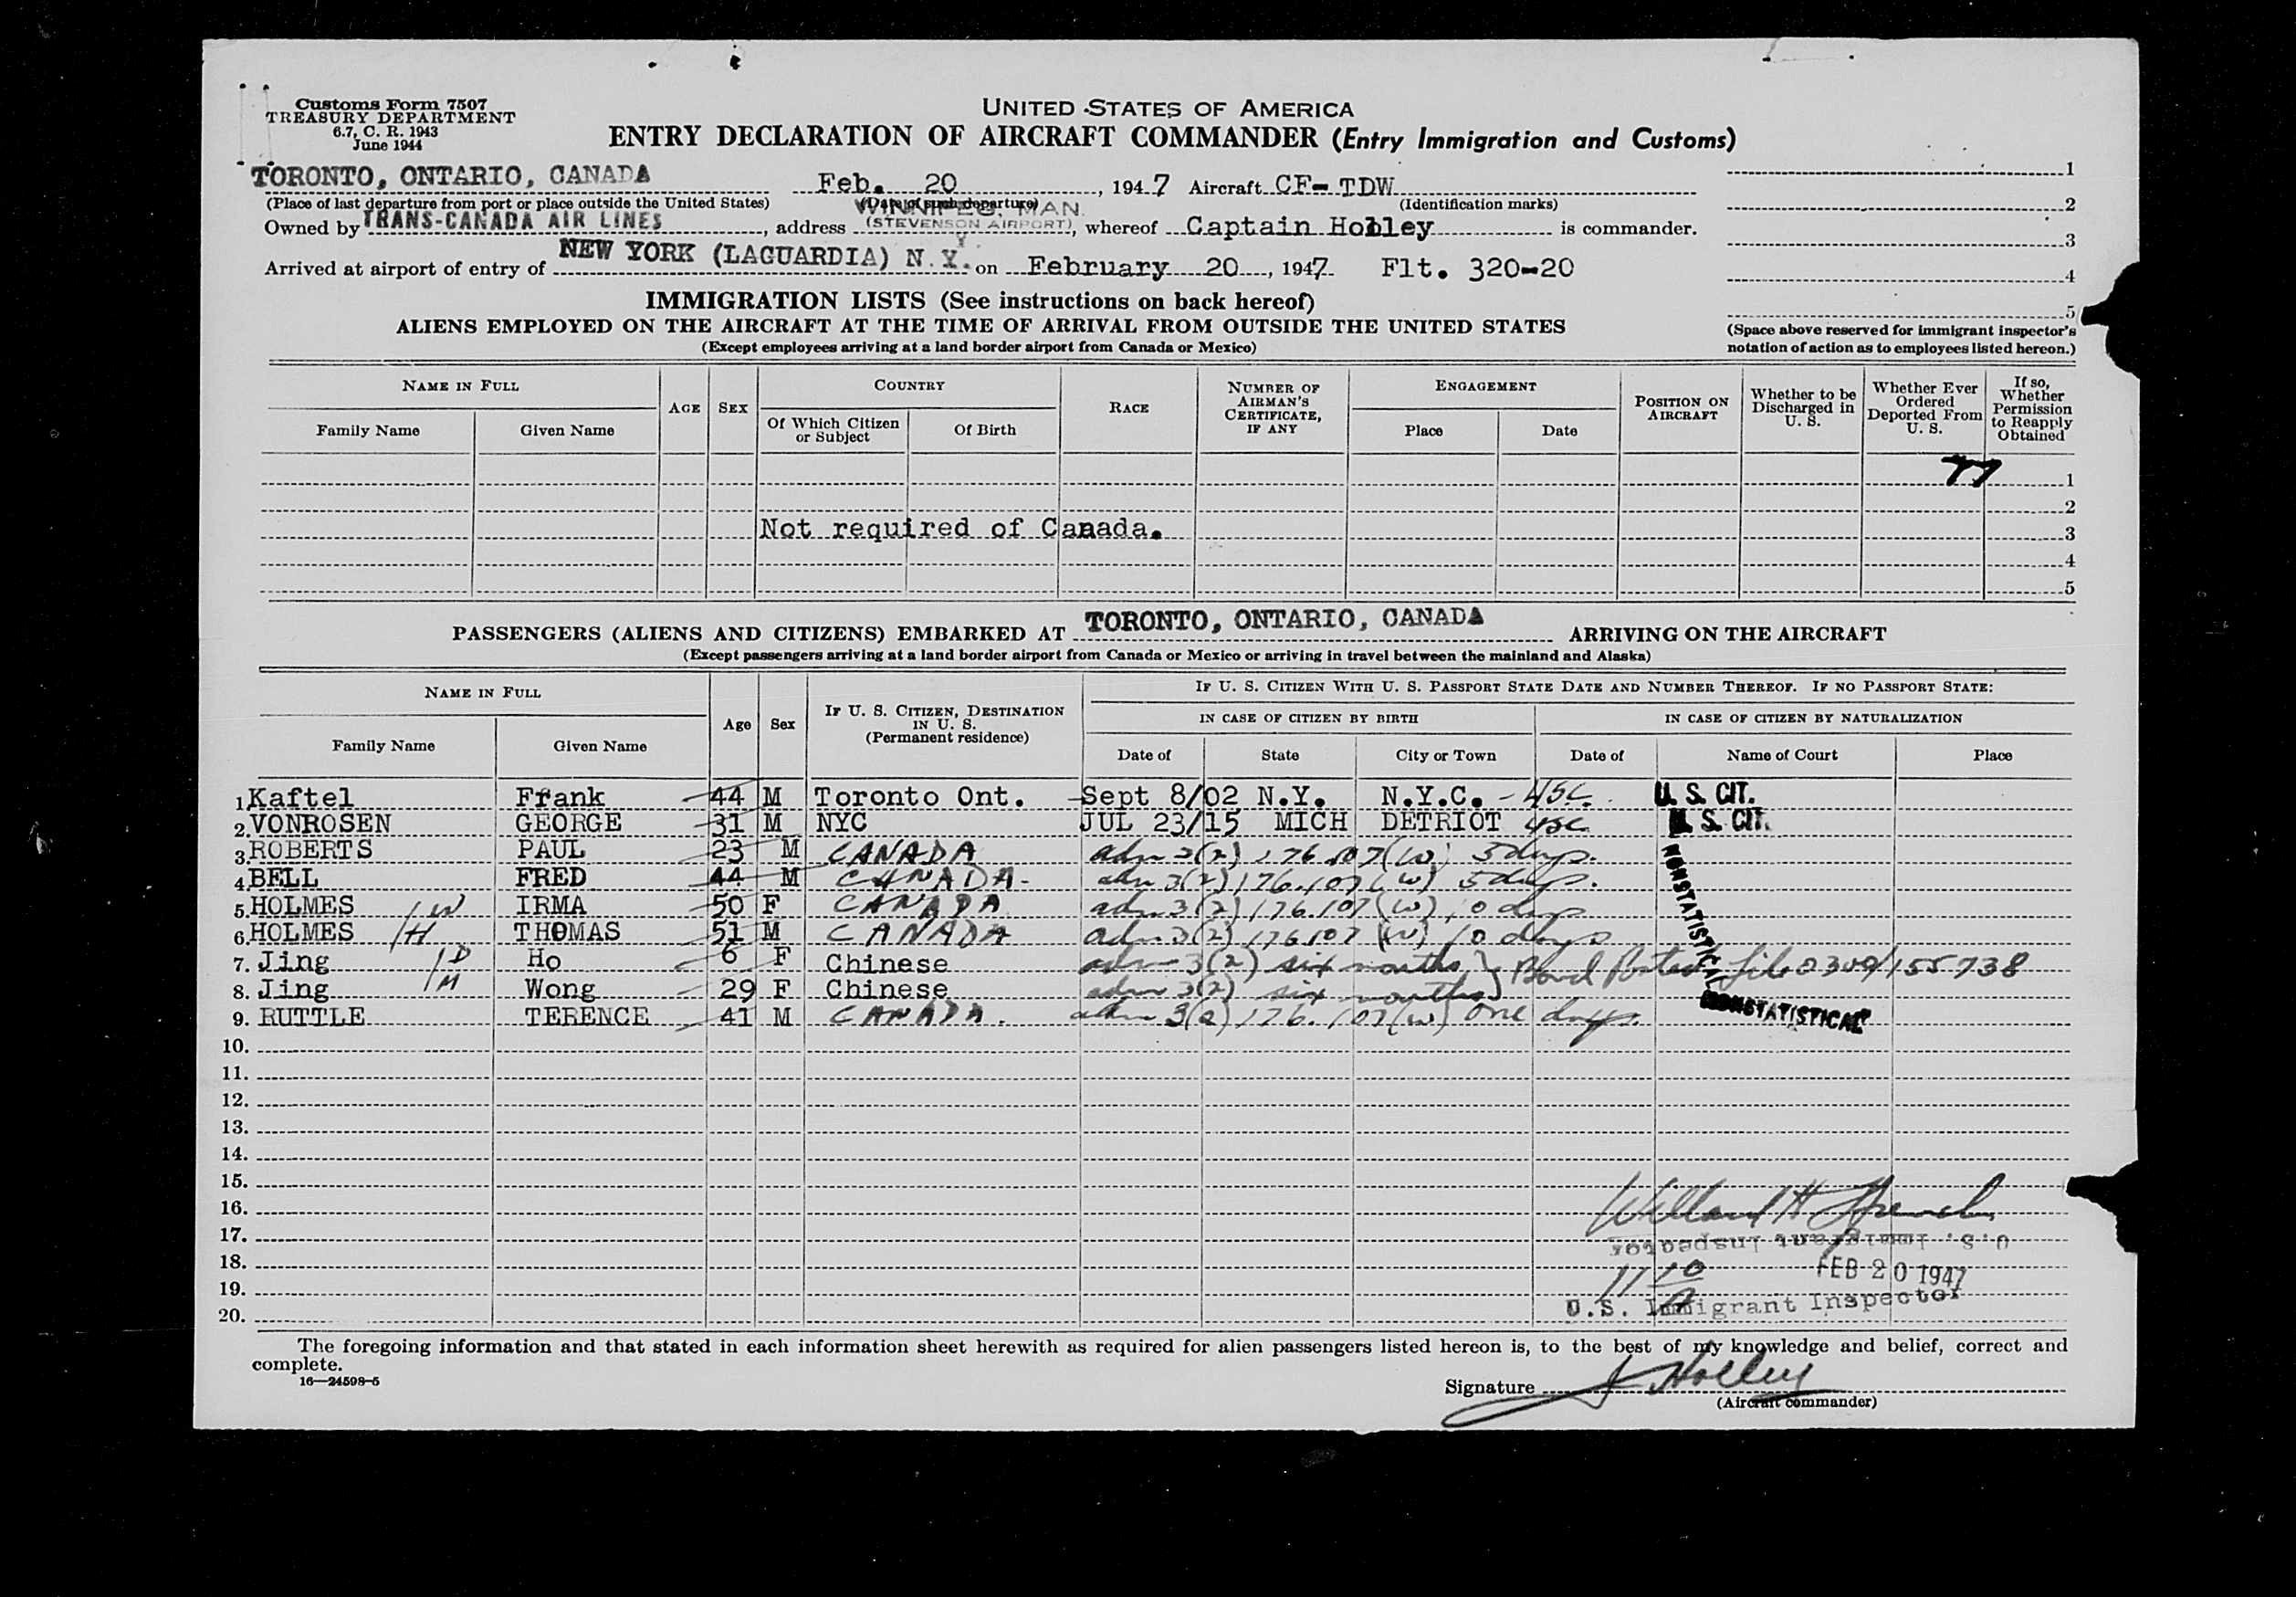 Customs Form 7507
TREASURY DEPARTMENT
6.7, C. R. 1943
June 1944
UNITED STATES OF AMERICA
ENTRY DECLARATION OF AIRCRAFT COMMANDER (Entry Immigration and Customs)
TORONTO, ONTARIO, CANADA Feb. 20, 1947 Aircraft CF-TDW
(Place of last departure from port or place outside the United States) (Date of such departure) (Identification marks)
WINNIPEG, MAN.
Owned by TRANS-CANADA AIR LINES, address (STEVENSON AIRPORT), whereof Captain Holley is commander.
Arrived at airport of entry of NEW YORK (LAGUARDIA) N.Y. on February 20, 1947 Flt. 320-20
1
2
3
4
5
(Space above reserved for immigrant inspector's
notation of action as to employees listed hereon.)
IMMIGRATION LISTS (See instructions on back hereof)
ALIENS EMPLOYED ON THE AIRCRAFT AT THE TIME OF ARRIVAL FROM OUTSIDE THE UNITED STATES
(Except employees arriving at a land border airport from Canada or Mexico)
NAME IN FULL AGE SEX COUNTRY RACE NUMBER OF AIRMAN'S CERTIFICATE, IF ANY ENGAGEMENT POSITION ON AIRCRAFT Whether to be Discharged in U. S. Whether Ever Ordered Deported From U. S. If so, Whether Permission to Reapply Obtained
Family Name Given Name Of Which Citizen or Subject Of Birth Place Date
1
2
Not required of Canada. 3
4
5
PASSENGERS (ALIENS AND CITIZENS) EMBARKED AT TORONTO, ONTARIO, CANADA ARRIVING ON THE AIRCRAFT
(Except passengers arriving at a land border airport from Canada or Mexico or arriving in travel between the mainland and Alaska)
NAME IN FULL Age Sex IF U. S. CITIZEN, DESTINATION IN U. S. (Permanent residence) IF U. S. CITIZEN WITH U. S. PASSPORT STATE DATE AND NUMBER THEREOF. IF NO PASSPORT STATE:
IN CASE OF CITIZEN BY BIRTH IN CASE OF CITIZEN BY NATURALIZATION
Family Name Given Name Date of State City or Town Date of Name of Court Place
1. Kaftel Frank 44 M Toronto Ont. Sept 8/02 N.Y. N.Y.C. - USC. U. S. CIT.
2. VONROSEN GEORGE 31 M NYC JUL 23/15 MICH DETRIOT USC U. S. CIT.
3. ROBERTS PAUL 23 M CANADA adm 3(2) 176.107(W) 5 days.
4. BELL FRED 44 M CANADA- adm 3(2) 176.107(W) 5 days.
5. HOLMES /W IRMA 50 F CANADA adm 3(2) 176.107(W) 10 days
6. HOLMES /H THOMAS 51 M CANADA adm 3(2) 176.107(W) 10 days
NONSTATISTICAL
7. Jing /D Ho 6 F Chinese adm 3(2) six months } Bond Posted file 0300/155738
8. Jing /M Wong 29 F Chinese adm 3(2) six months
9. RUTTLE TERENCE 41 M CANADA. adm 3(2) 176.107(W) one days. NONSTATISTICAL
10.
11.
12.
13.
14.
15.
16. Willard H French
17. U.S. Immigrant Inspector
18. 11 10 A FEB 20 1947
19.
20. U.S. Immigrant Inspector
The foregoing information and that stated in each information sheet herewith as required for alien passengers listed hereon is, to the best of my knowledge and belief, correct and
complete.
16—24598-5
Signature J Holley
(Aircraft commander)